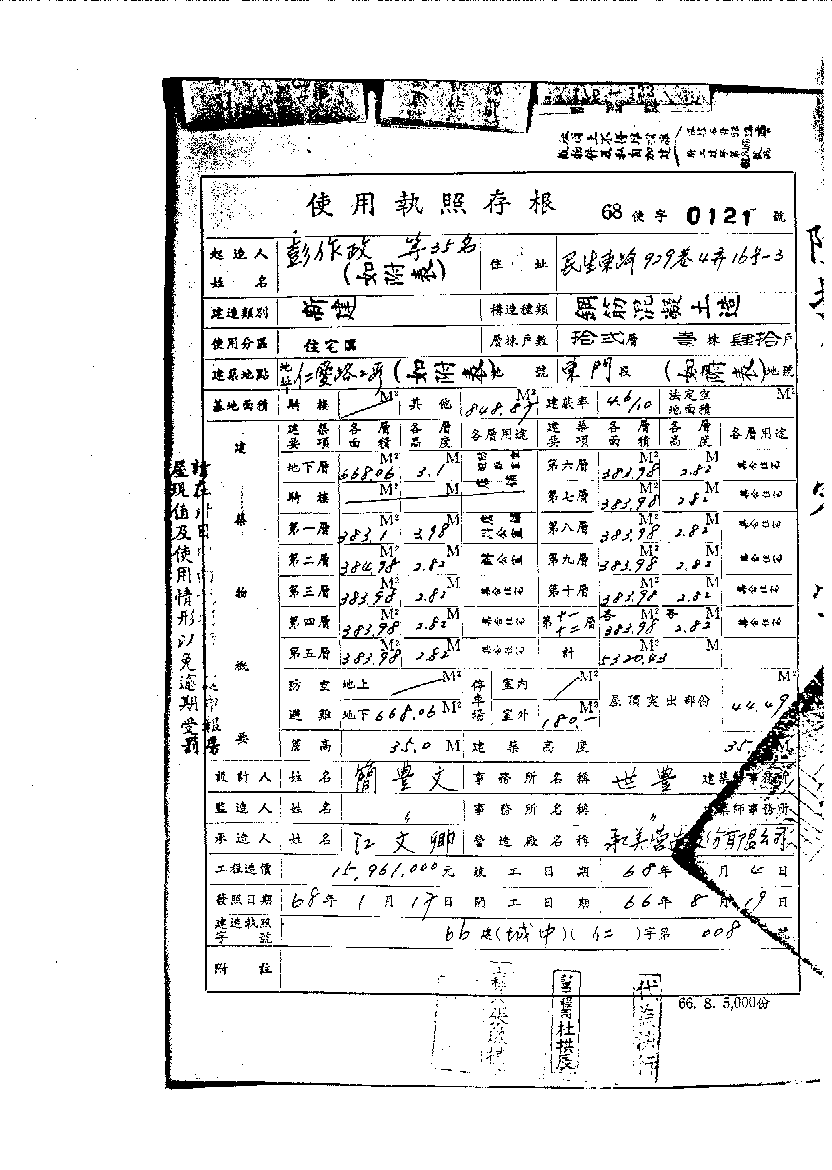 使用執照存根 68使字0121號
起造人姓名 彭作政 等35名 (如附表) 住址 民生東路929巷4弄168-3
建造類別 新建 構造種類 鋼筋混凝土造
使用分區 住宅區 層棟戶數 拾貳層 壹棟 肆拾戶
建築地點 地址 仁愛路二段 (如附表) 號 東門段 (如附表) 地號
基地面積 騎樓 M² 其他 848.87 M² 建蔽率 4.6/10 法定空地面積 M²
建築物概要
建築要項 各層面積 各層高度 各層用途 建築要項 各層面積 各層高度 各層用途
地下層 668.06 M² 3.1 M 第六層 383.98 M² 2.82 M 集合住宅
騎樓 M² M 第七層 383.98 M² 2.82 M 集合住宅
第一層 383.1 M² 3.98 M 第八層 383.98 M² 2.82 M 集合住宅
第二層 384.98 M² 2.82 M 辦公室 第九層 383.98 M² 2.82 M 集合住宅
第三層 383.98 M² 2.82 M 集合住宅 第十層 383.98 M² 2.82 M 集合住宅
第四層 383.98 M² 2.82 M 集合住宅 第十一十二層 各383.98 M² 各2.82 M 集合住宅
第五層 383.98 M² 2.82 M 集合住宅 計 5320.43 M² M
防空避難 地上 M² 停車場 室內 M² 屋頂突出部份 44.49 M²
地下 668.06 M² 室外 180.— M²
簷高 35.0 M 建築高度 35 M
設計人 姓名 簡豐文 事務所名稱 世豐 建築師事務所
監造人 姓名 〃 事務所名稱 〃 建築師事務所
承造人 姓名 江文卿 營造廠名稱
工程造價 15,961,000元 竣工日期 68年 月4日
發照日期 68年1月17日 開工日期 66年8月19日
建造執照字號 66建(城中)(仁)字第008號
附註
66. 8. 5,000份
屋現值及使用情形以免逾期受罰
杜拱辰